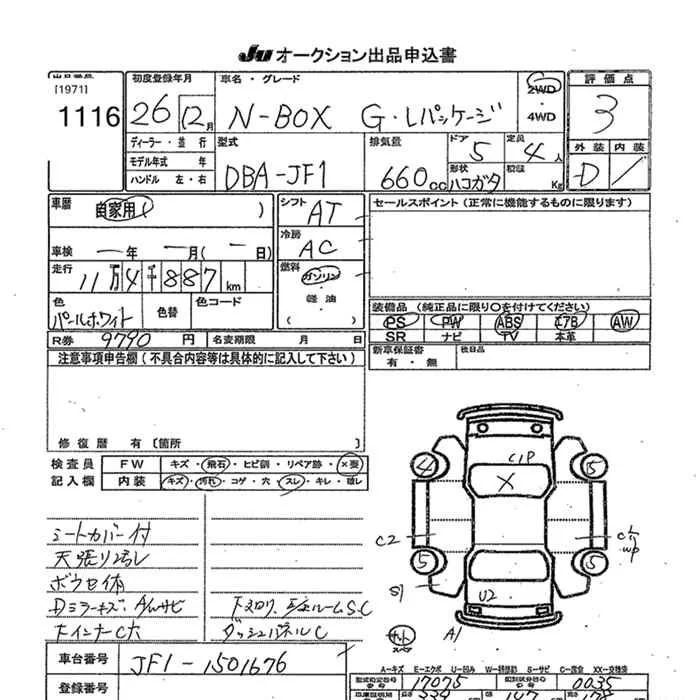 JU オークション出品申込書
出品番号
[1971]
1116
初度登録年月
26 12月
車名・グレード
N-BOX G・Lパッケージ
2WD
・
4WD
評価点
3
外装 内装
D
ディーラー・並行
モデル年式 年
ハンドル 左・右
型式
DBA-JF1
排気量
660cc
ドア
5
形状
ハコガタ
定員
4人
積載
Kg
車暦
自家用 )
車検 ー年 ー月(ー日)
走行
11万4千887km
色
パールホワイト
色替
色コード
シフト
AT
冷房
AC
燃料
ガソリン
・
軽油
( )
セールスポイント(正常に機能するものに限ります)
装備品 (純正品に限り○を付けてください)
PS PW ABS エアB AW
SR ナビ TV 本革
R券 9790 円 名変期限 月 日
新車保証書
有・無
注意事項申告欄(不具合内容等は具体的に記入して下さい)
修復暦 有〔箇所 〕
検査員
記入欄
FW キズ・飛石・ヒビ割・リペア跡・×要
内装 キズ・汚れ・コゲ・穴・スレ・キレ・
シートカバー付
天張り汚レ
DミラーキズA/Wサビ
ダッシュパネルC
C1P
X
4
5
5
5
C2
S1
U2
A1
スペア
車台番号 JF1-1501676
登録番号
A-キズ E-エクボ U-凹み S-サビ C-腐食 XX-交換済
型式指定番号 17075
類別区分番号 0035